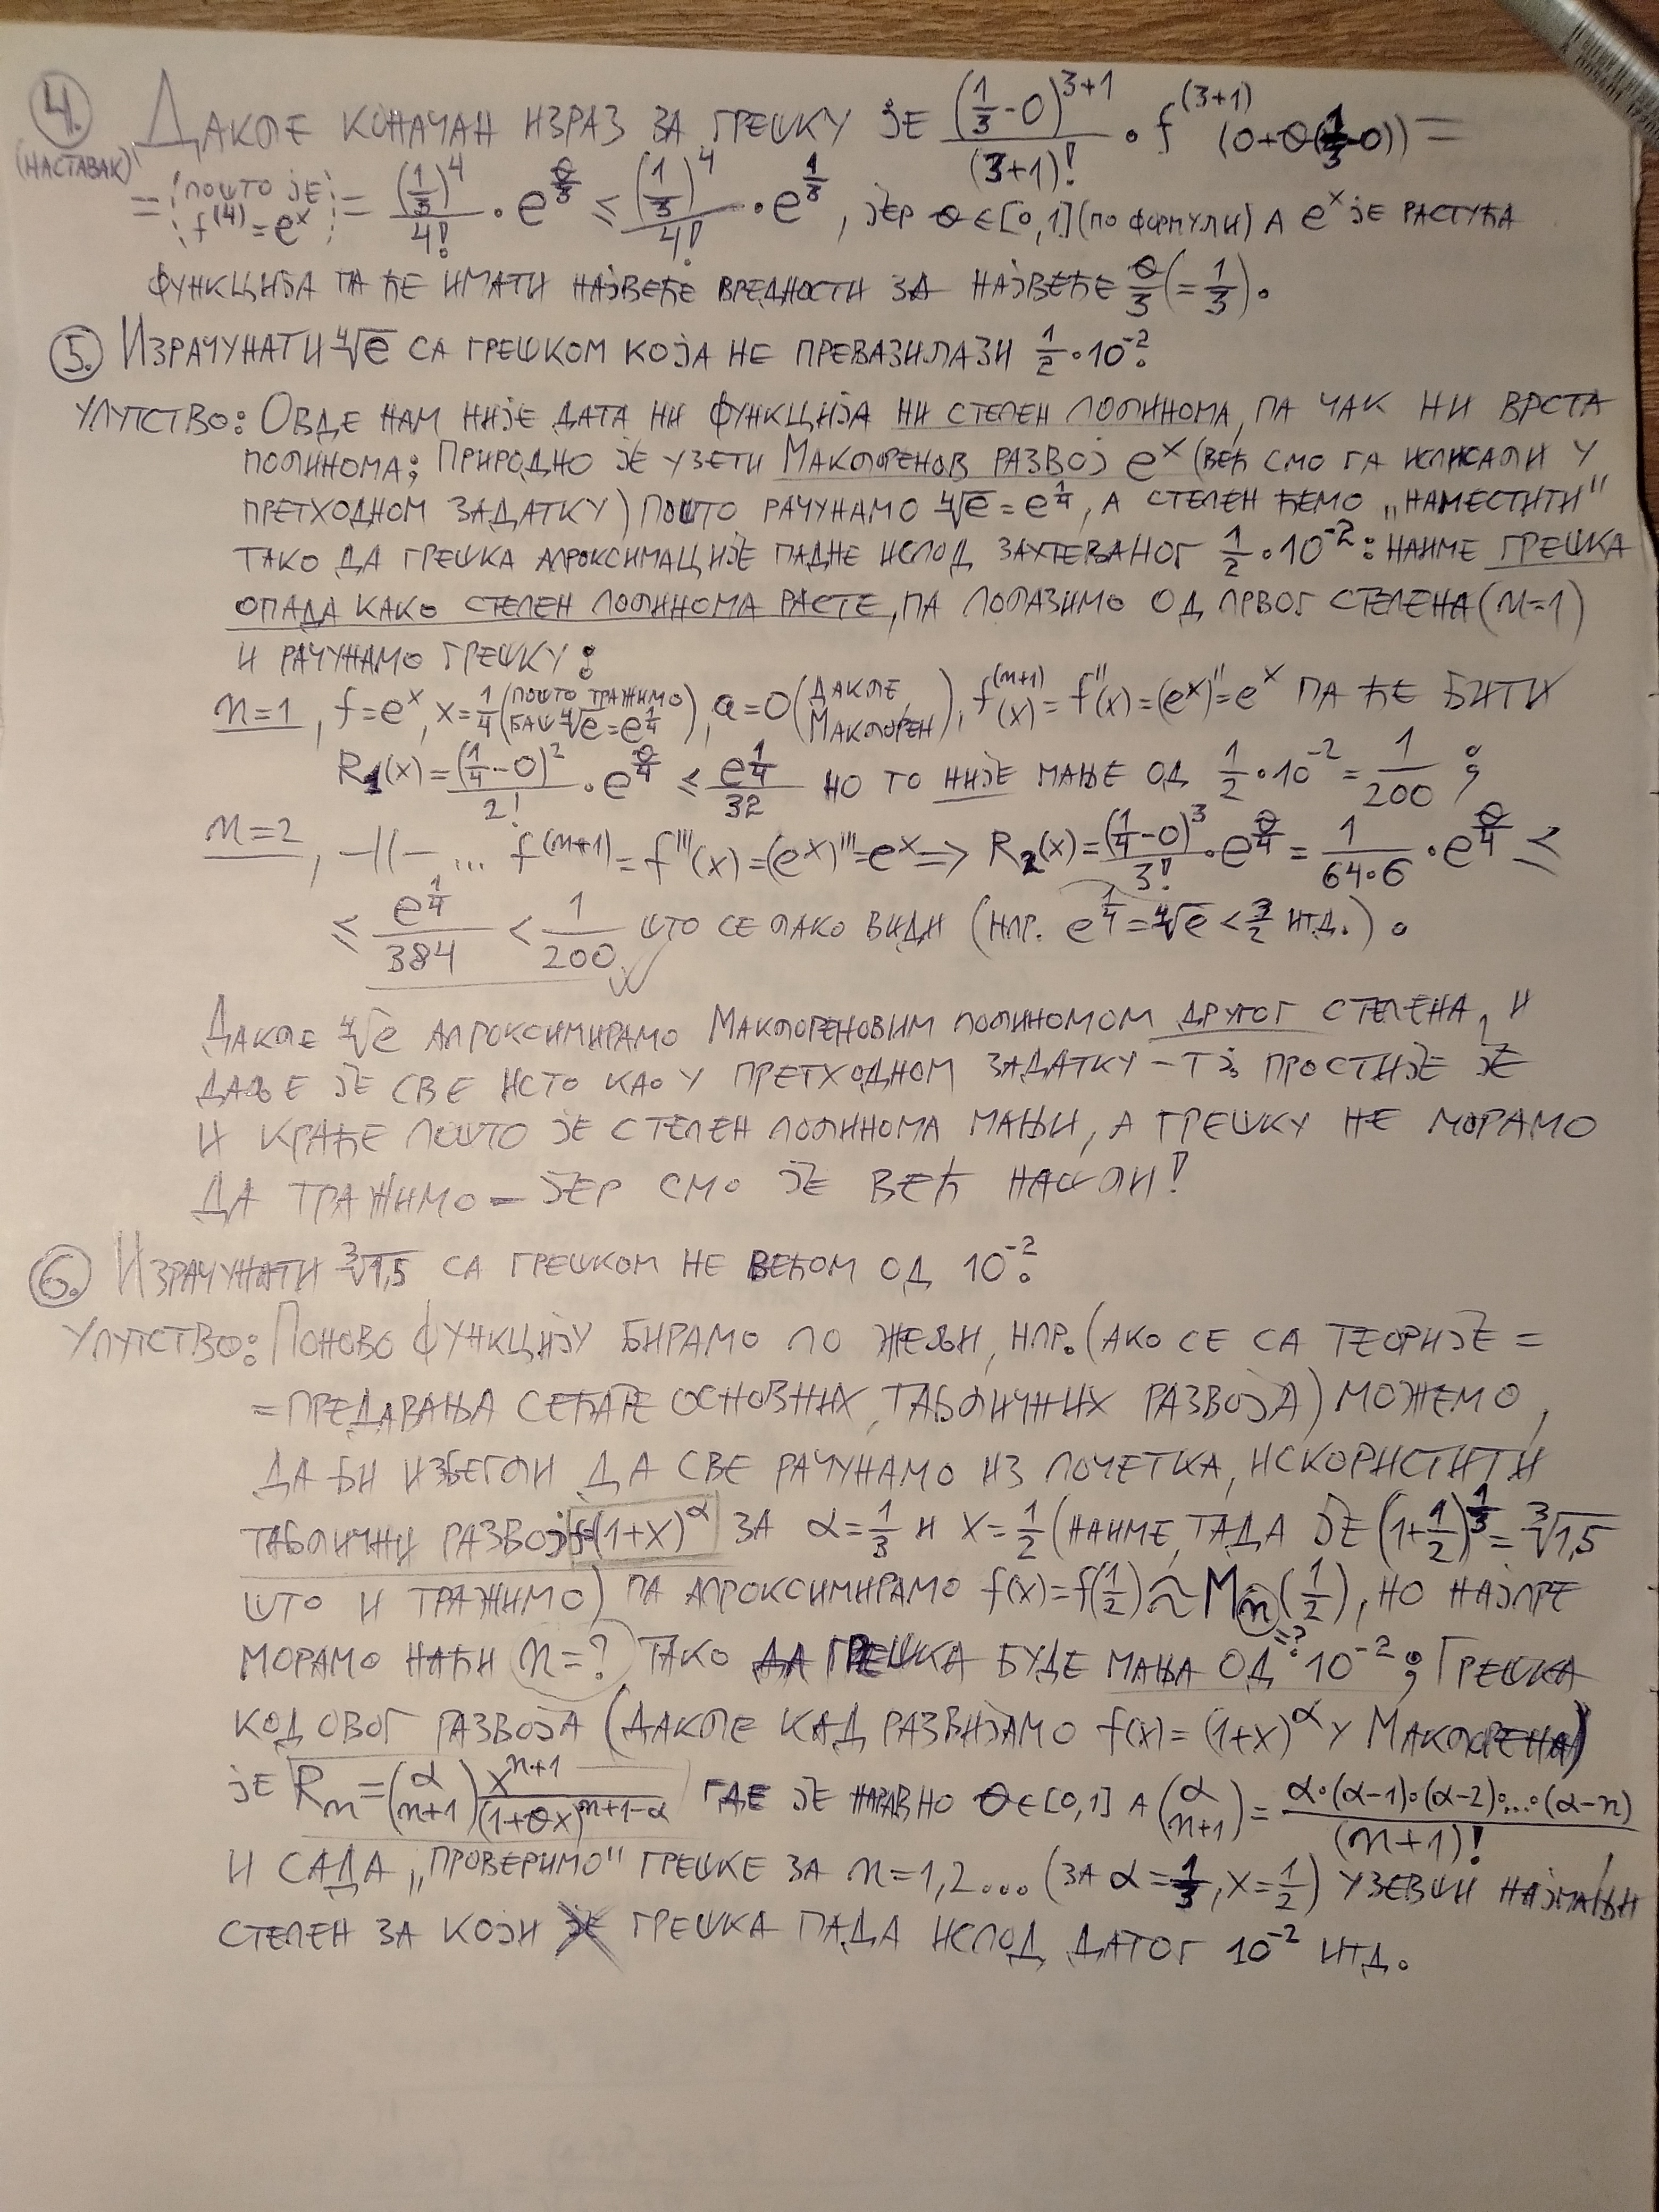 4. Дакле коначан израз за грешку је (1/3-0)^(3+1)/(3+1)! • f^(3+1)(0+θ(1/3-0)) =
(наставак)
= (пошто је f^(4)=e^x) = (1/3)^4/4! • e^(θ/3) ≤ (1/3)^4/4! • e^(1/3), јер θ∈[0,1] (по формули) а e^x је растућа
функција па ће имати највеће вредности за највеће θ/3 (=1/3).
5. Израчунати ∜e са грешком која не превазилази 1/2•10^-2.
Упутство: Овде нам није дата ни функција ни степен полинома, па чак ни врста
полинома; Природно је узети Маклоренов развој e^x (већ смо га исписали у
претходном задатку) пошто рачунамо ∜e = e^(1/4), а степен ћемо „наместити"
тако да грешка апроксимације падне испод захтеваног 1/2•10^-2: наиме грешка
опада како степен полинома расте, па полазимо од првог степена (n=1)
и рачунамо грешку:
n=1, f=e^x, x=1/4 (пошто тражимо баш ∜e=e^(1/4)), a=0 (дакле Маклорен), f^(n+1)(x) = f''(x) = (e^x)'' = e^x па ће бити
R1(x) = (1/4-0)^2/2! • e^(θ/4) ≤ e^(1/4)/32 но то није мање од 1/2•10^-2 = 1/200;
n=2, -||- ... f^(n+1) = f'''(x) = (e^x)''' = e^x => R2(x) = (1/4-0)^3/3! • e^(θ/4) = 1/(64•6) • e^(θ/4) ≤
≤ e^(1/4)/384 < 1/200 што се лако види (нпр. e^(1/4) = ∜e < 3/2 итд.).
Дакле ∜e апроксимирамо Маклореновим полиномом другог степена, и
даље је све исто као у претходном задатку - тј. простије је
и краће пошто је степен полинома мањи, а грешку не морамо
да тражимо - јер смо је већ нашли!
6. Израчунати ∛1,5 са грешком не већом од 10^-2.
Упутство: Поново функцију бирамо по жељи, нпр. (ако се са теорије =
= предавања сећате основних, табличних развоја) можемо,
да би избегли да све рачунамо из почетка, искористити
таблични развој f=(1+x)^α за α=1/3 и x=1/2 (наиме, тада је (1+1/2)^(1/3) = ∛1,5
што и тражимо) па апроксимирамо f(x)=f(1/2)≈Mn(1/2), но најпре
=?
морамо наћи n=? тако да грешка буде мања од 10^-2; Грешка
код овог развоја (дакле кад развијамо f(x)=(1+x)^α у Маклорена)
је Rn = (α n+1) x^(n+1)/(1+θx)^(n+1-α) где је наравно θ∈[0,1] а (α n+1) = α•(α-1)•(α-2)•...•(α-n)/(n+1)!
и сада „проверимо" грешке за n=1,2... (за α=1/3, x=1/2) узевши најмањи
степен за који грешка пада испод датог 10^-2 итд.